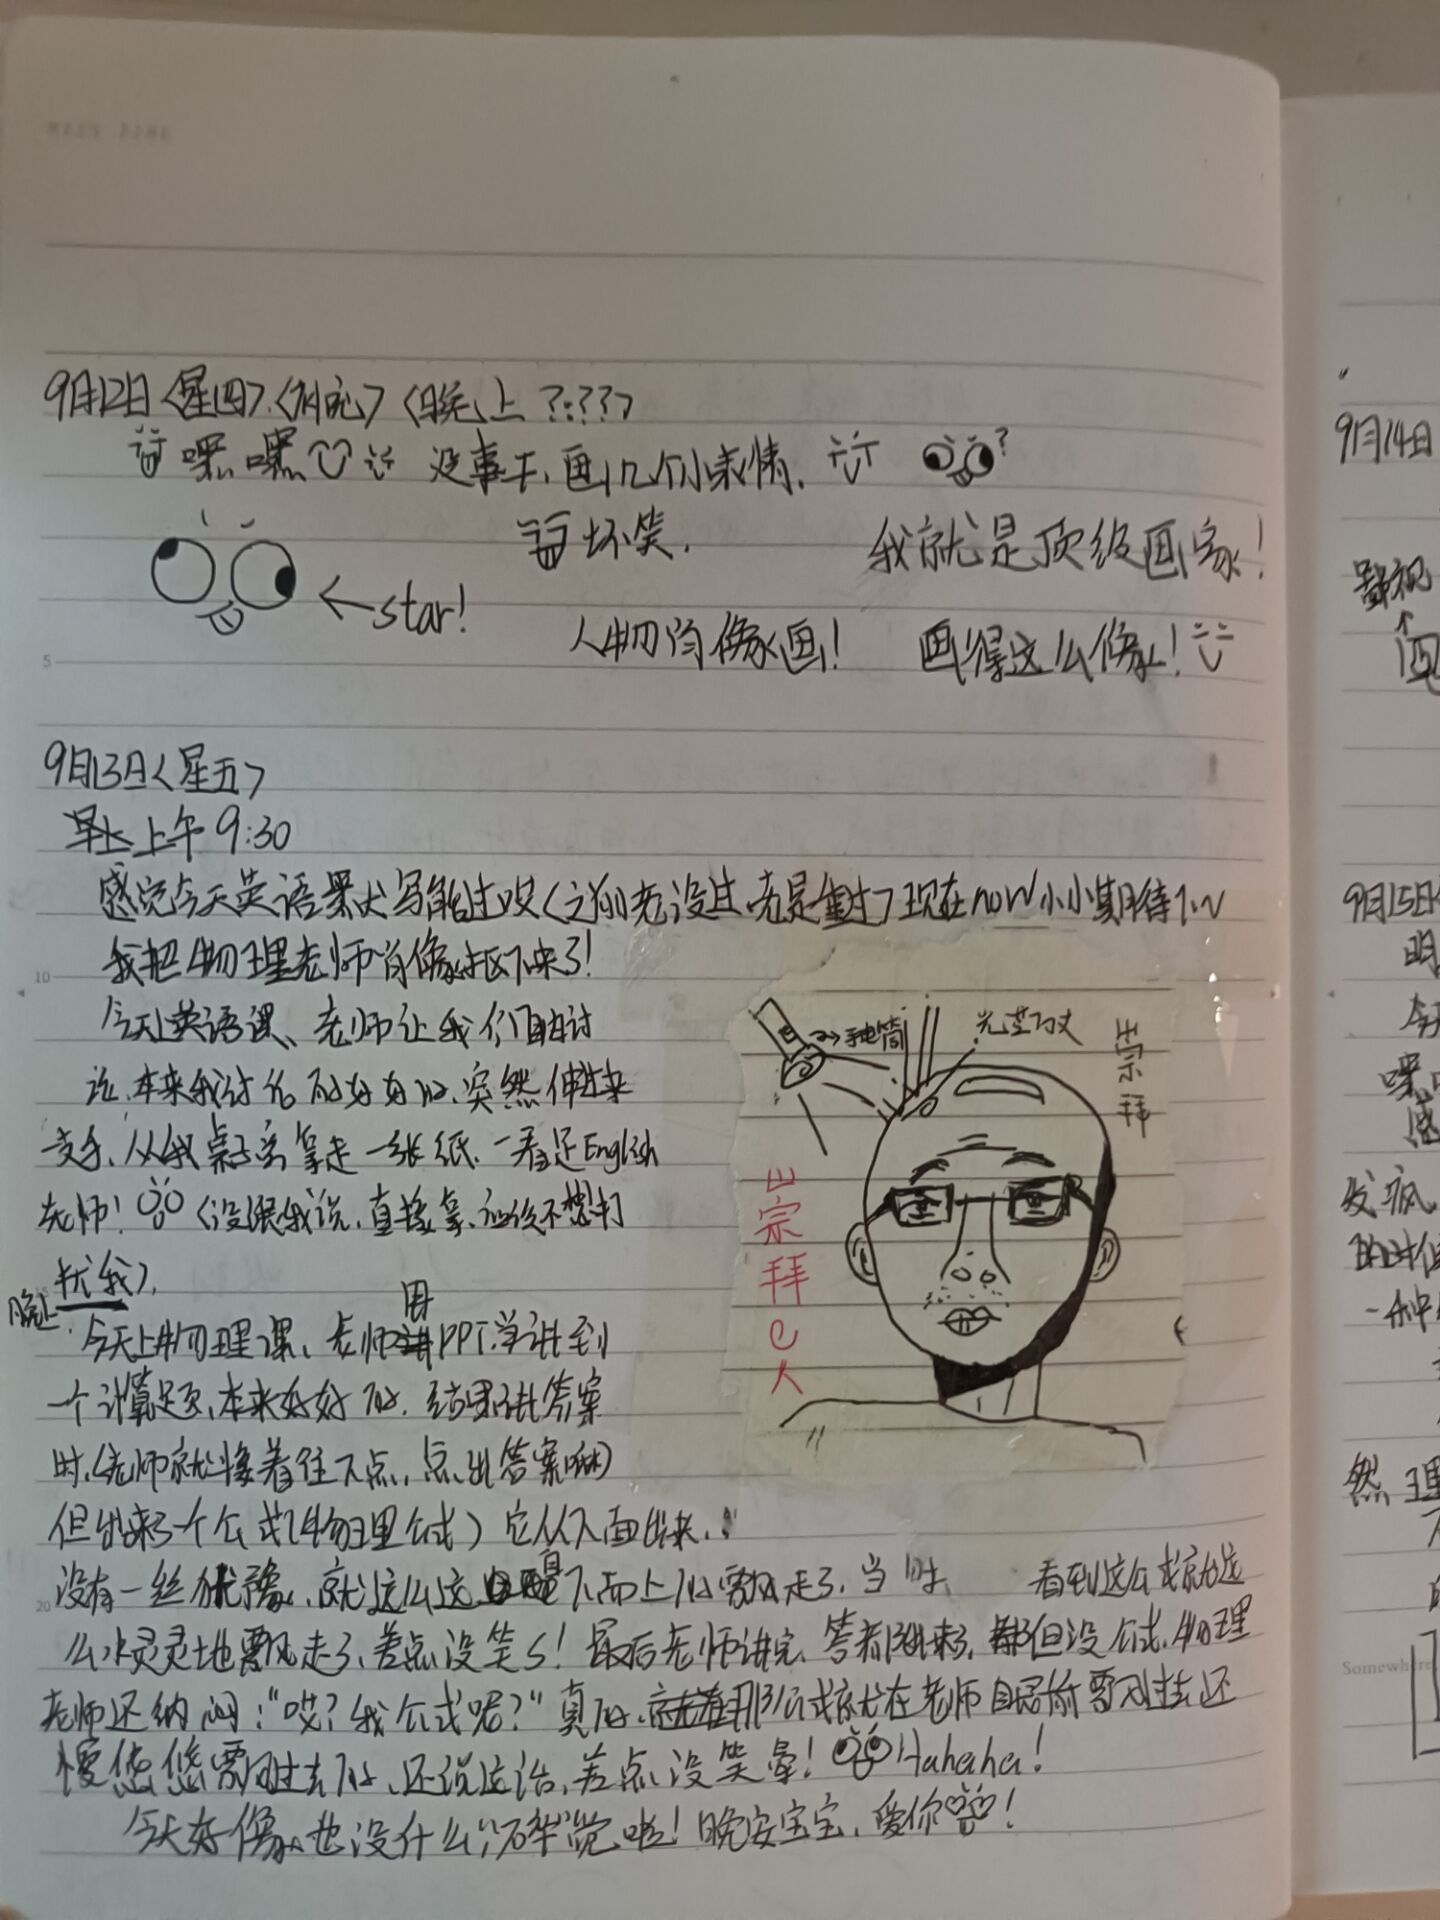 9月12日〈星四〉〈补充〉〈晚上 ?:??〉
嘿嘿 没事干、画几个小表情.
坏笑.
我就是顶级画家!
←star!
人物肖像画! 画得这么像!
9月13日〈星五〉
上午 9:30
感觉今天英语默写能过哎〈之前老没过 老是 现在now小小期待
我把物理老师肖像抠下来了!
今天上英语课、老师让我们自由讨
论、本来我讨论的好好的、突然伸进来
支手、从我桌子旁拿走一张纸、一看是English
老师! 〈没跟我说、直接拿、应该不想打
扰我〉.
晚上
今天上物理课、老师用PPT、当讲到
一个计算题、本来好好的、结果讲答案
时、(老师就接着往下点、点出答案嘛)
但出来了一个公式(物理公式) 它从下面出来、
没有一丝犹豫、就这么这 自下而上的飘走了、当时、 看到这公式就这
么水灵灵地飘走了、差点没笑s! 最后老师讲完、答案都出来了、但没公式、物理
老师还纳闷:“哎? 我公式呢?” 真的、那公式就在老师自己面前飘过去还
慢悠悠飘过去的、还说这话、差点没笑晕! Hahaha!
今天好像也没什么,碎觉啦! 晚安宝宝、爱你!
手电筒
光芒万丈
崇拜
崇拜の人
9月14日
鄙视
9月15日
明
今
嘿
感
发疯
的时候
一种
然 理
Somewhere
5
10
20